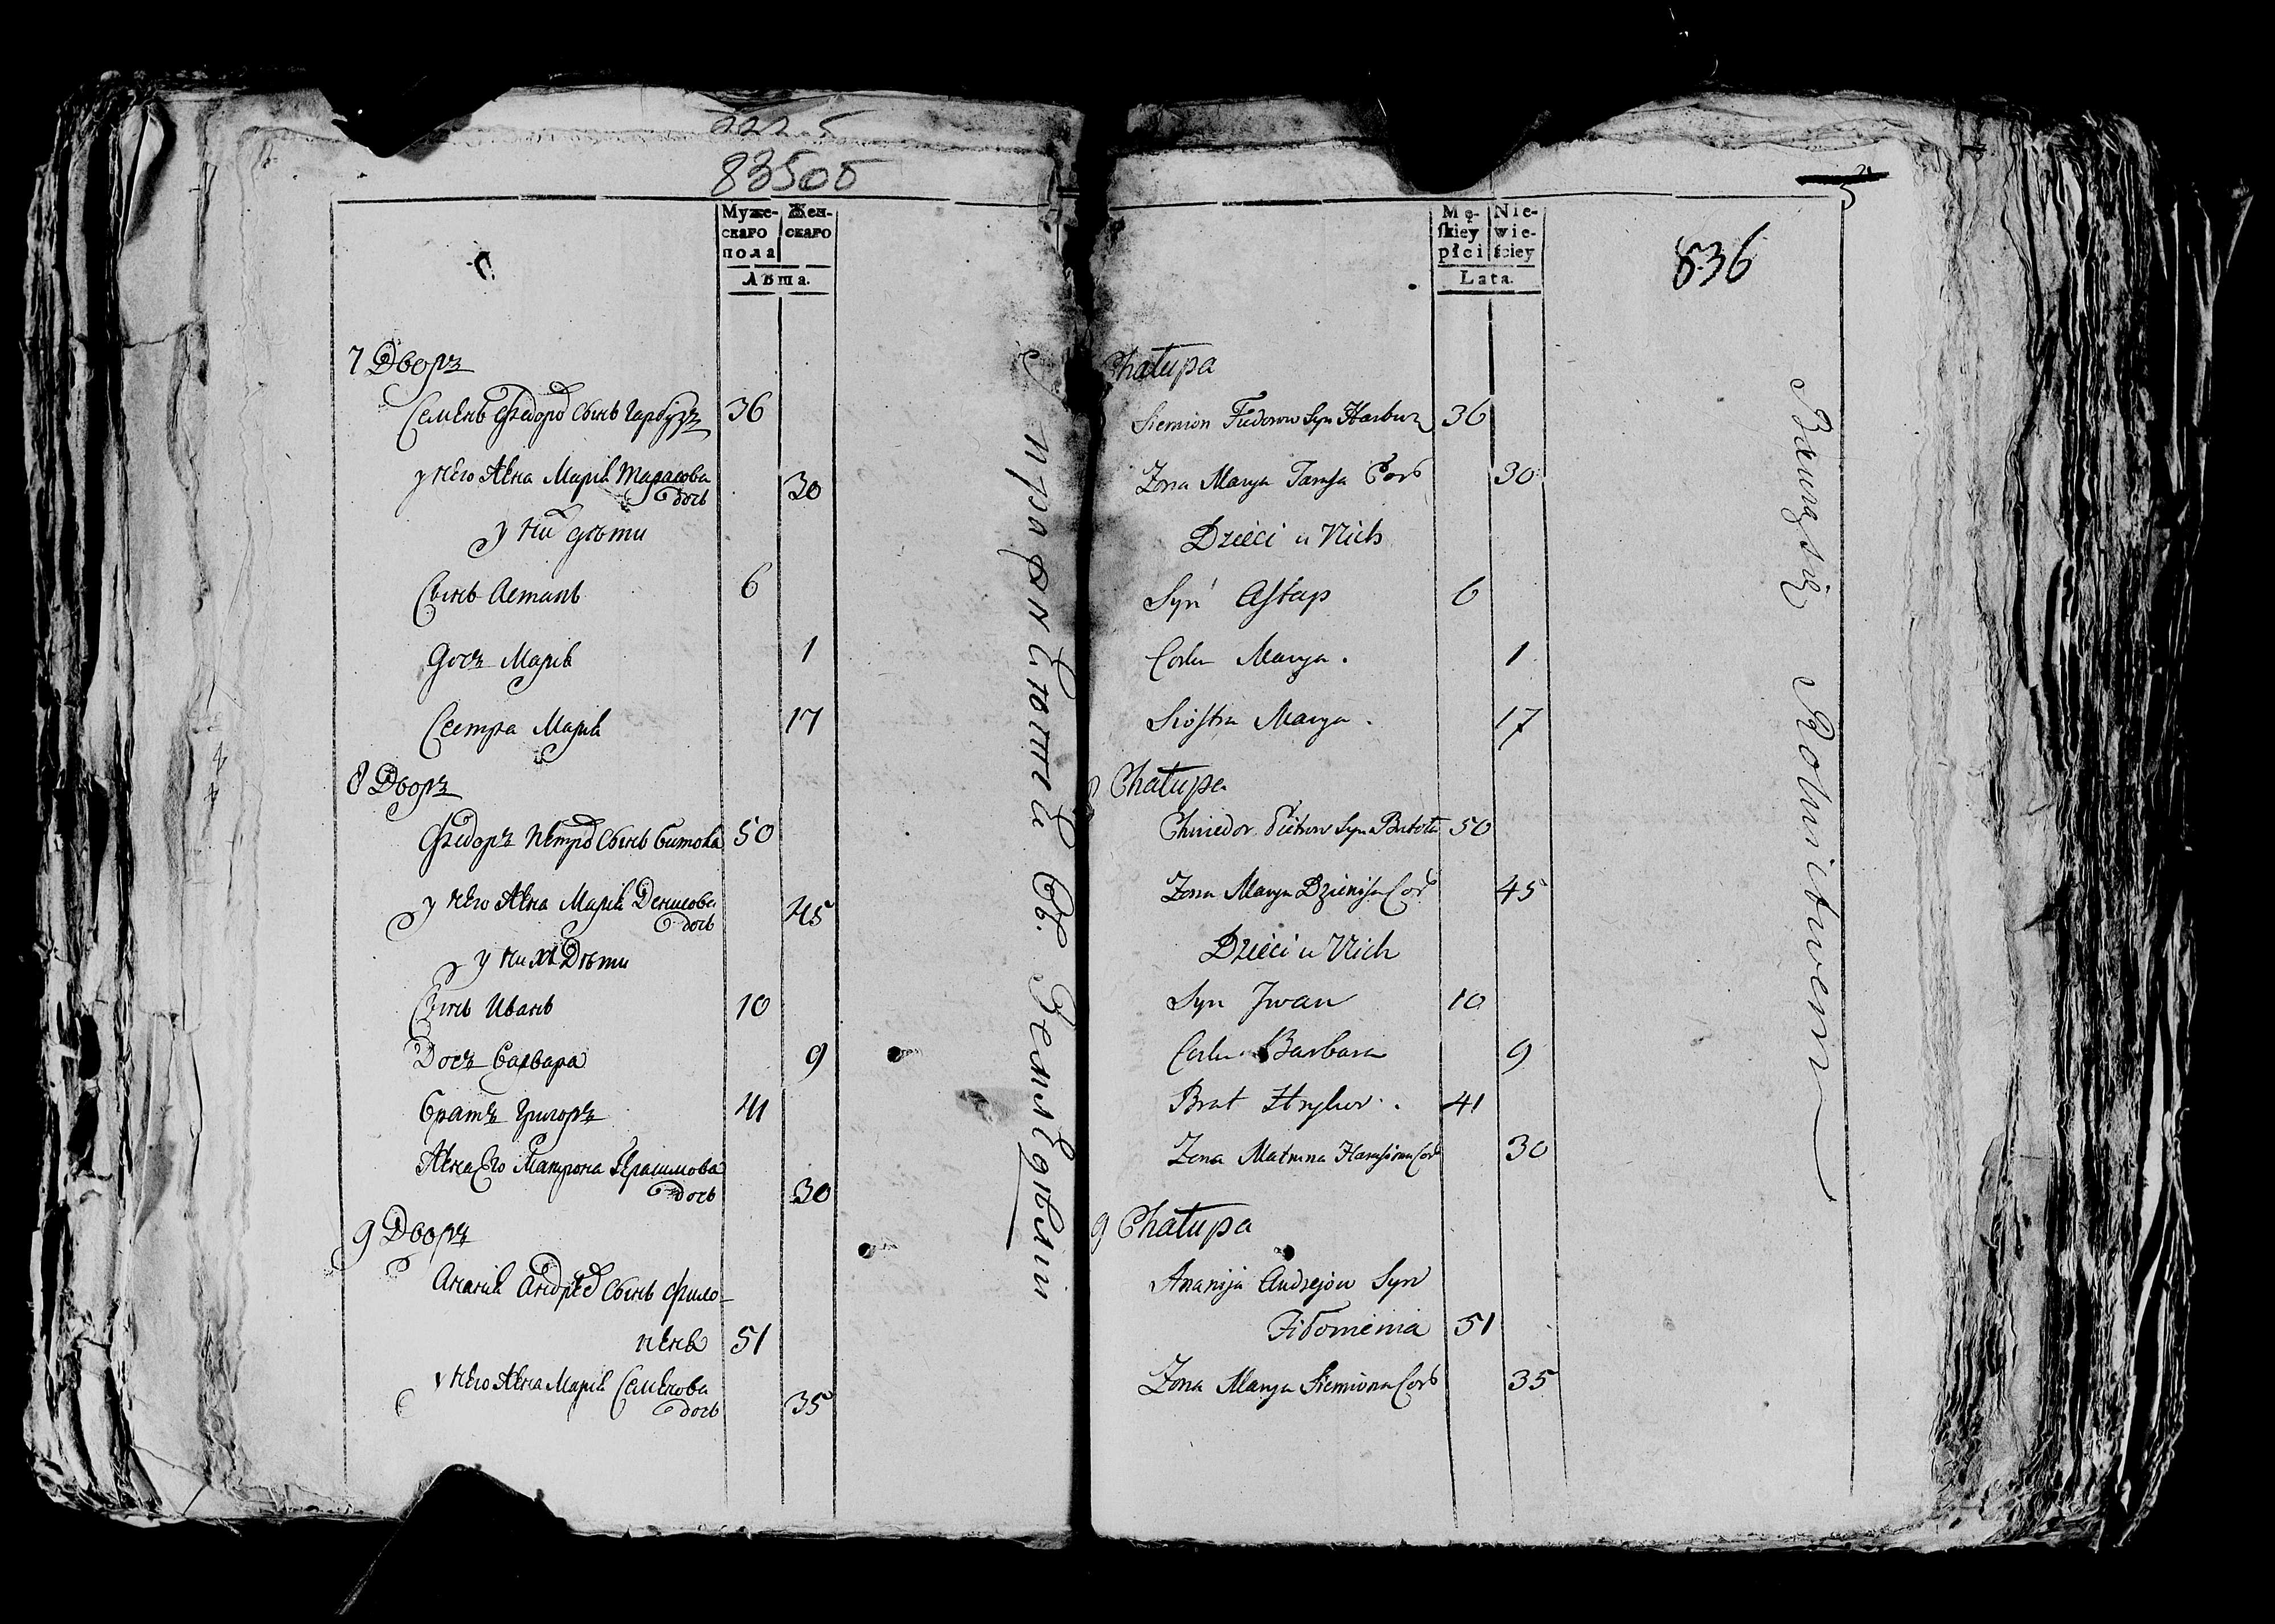 222.5
8350б
Муже-
скаго
пола
Жен-
скаго
Лѣта.
7 Дворъ
Семенъ Федоров Сынъ Гарбузъ 36
у него жена Марія Тарасова
дочь 30
у них дѣти
Сынъ Астапъ 6
Дочь Марія 1
Сестра Марія 17
8 Дворъ
Федоръ Петров Сынъ Битока 50
у него жена Марія Денисова
дочь 45
у них Дѣти
Сынъ Иванъ 10
Дочь Варвара 9
Братъ Григоръ 41
Жена Его Матрона Герасимова
дочь 30
9 Дворъ
Ананія Андрѣев Сынъ Фило-
пеня 51
у него жена Марія Семенова
дочь 35
графъ Юзефъ
Mę-
ſkiey
płci
Nie-
wie-
ściey
Lata.
836
Chałupa
Siemion Fiedorow Syn Harbuz 36
Żona Marya Tarasa Cor 30
Dzieci u Nich
Syn Aſtap 6
Corka Marya. 1
Sioſtra Marya. 17
8 Chałupa
Chwiedor Pietrow Syn Bitoka 50
Żona Marya Dzienisa Cor 45
Dzieci u Nich
Syn Jwan 10
Corka Barbara 9
Brat Hryhor. 41
Żona Matruna Harasima Cor 30
9 Chałupa
Ananija Andrejow Syn
Filomienia 51
Żona Marya Siemiona Cor 35